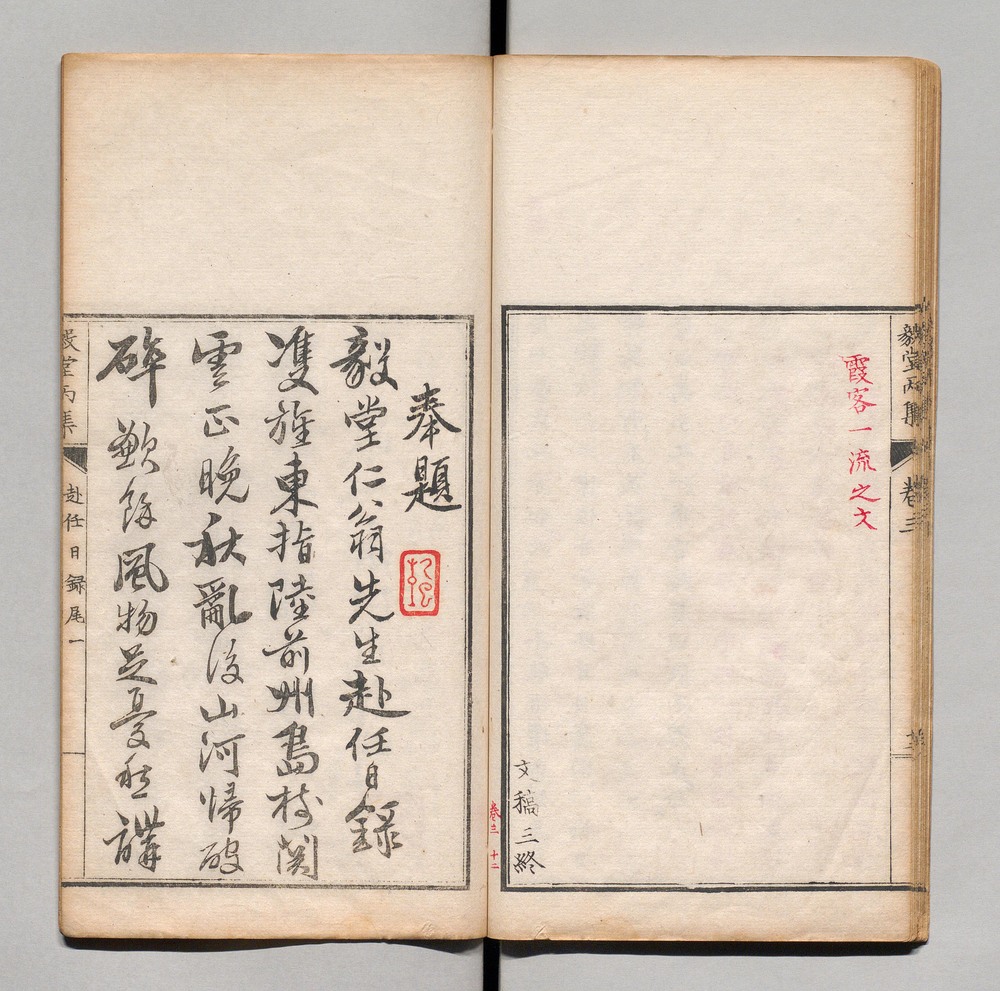 毅堂丙集
卷三
霞客一流之文
文稿三終
卷三 十二
奉題
毅堂仁翁先生赴任日錄
雙旌東指陸前州島樹関
雲正晚秋亂後山河帰破
碎歉餘風物足憂愁講
毅堂丙集
赴任日録尾一